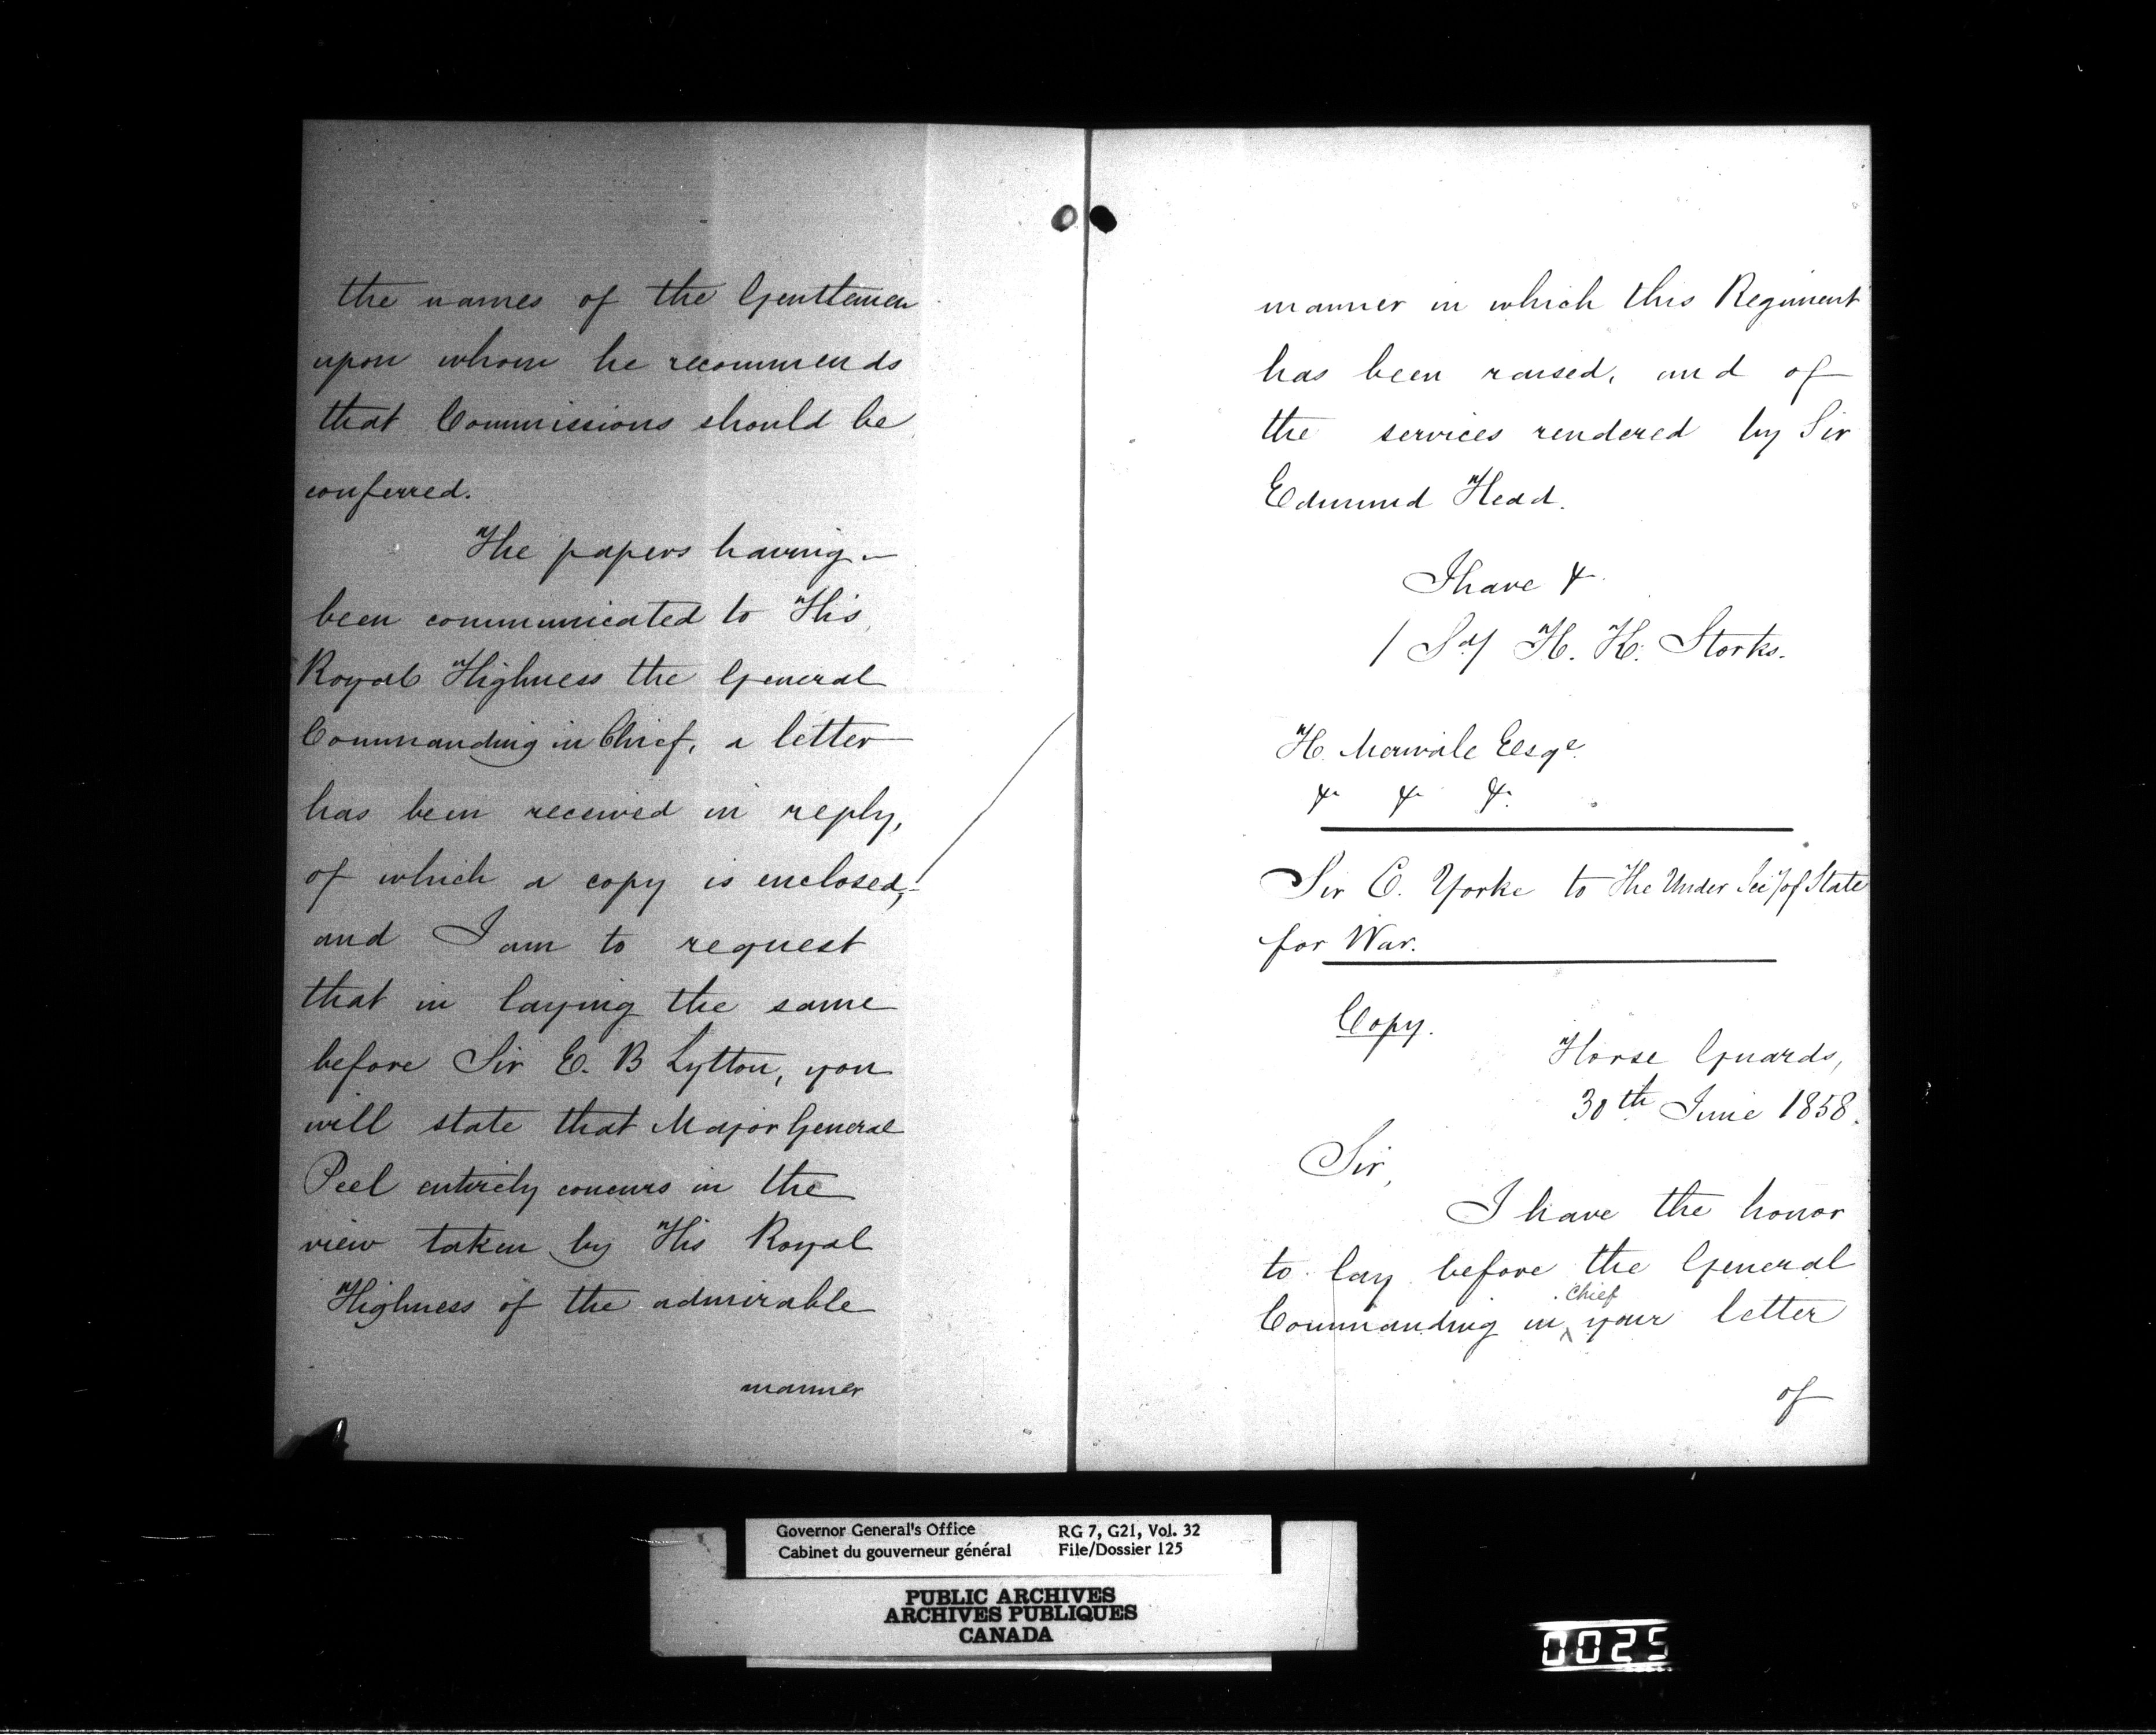 the names of the Gentlemen
upon whom he recommends
that Commissions should be
conferred.
The papers having
been communicated to His
Royal Highness the General
Commanding in Chief, a letter
has been received in reply,
of which a copy is enclosed,
and I am to request
that in laying the same
before Sir E. B Lytton, you
will state that Major General
Peel entirely concurs in the
view taken by His Royal
Highness of the admirable
manner
manner in which this Regiment
has been raised, and of
the services rendered by Sir
Edmund Head.
I have &
/ Sd/ H. K. Storks.
H. Merivale Esqe.
& & &
Sir C. Yorke to The Under Secy of State
for War.
Copy.
Horse Guards,
30th June 1858.
Sir,
I have the honor
to lay before the General
Chief
Commanding in ^ your letter
of
Governor General's Office
Cabinet du gouverneur général
RG 7, G21, Vol. 32
File/Dossier 125
PUBLIC ARCHIVES
ARCHIVES PUBLIQUES
CANADA
0025